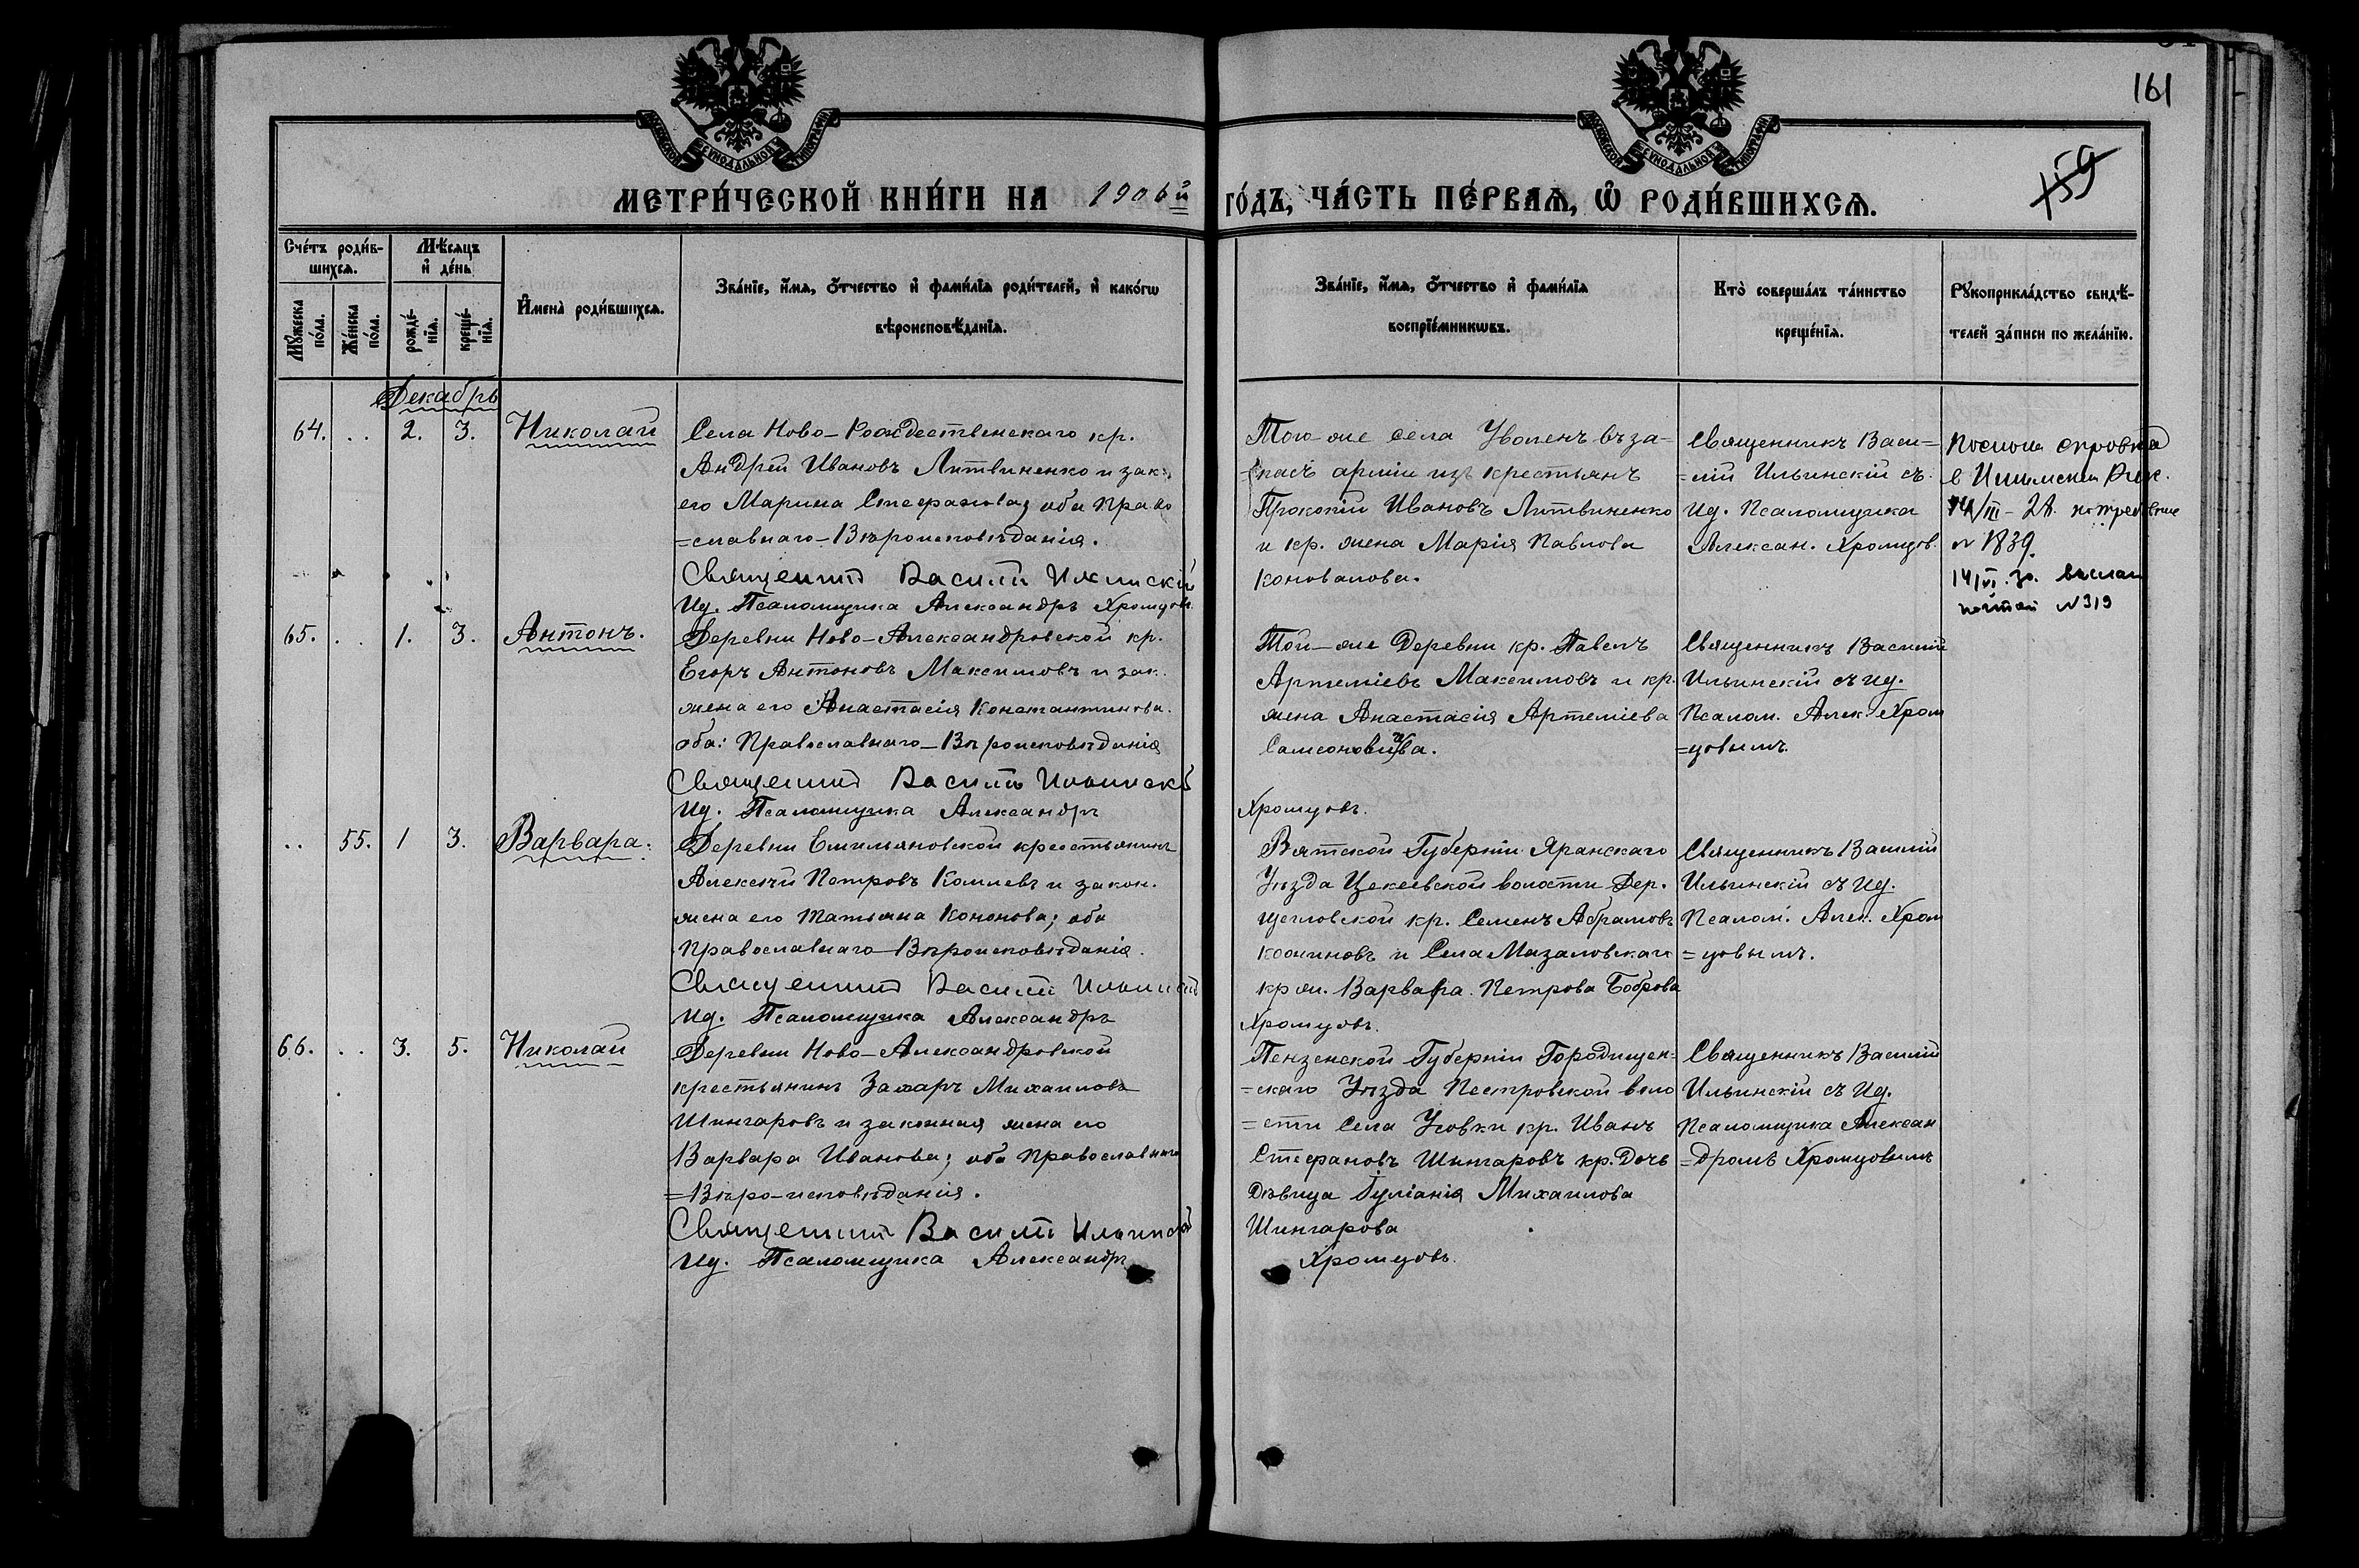 161
159
МЕТРИ́ЧЕСКОЙ КНИ́ГИ НА 1906й ГО́ДЪ, ЧА́СТЬ ПЕ́РВАѦ, Ѿ РОДИ́ВШИХСѦ.
Сче́тъ роди́в-
шихсѧ.
Мꙋ́жеска по́ла.
Же́нска по́ла.
Мѣ́сяцъ
и де́нь
рожде́-
нїѧ.
креще́-
нїѧ.
Имена̀ роди́вшихсѧ.
Зва́нїе, и́мѧ, о́тчество и фами́лїѧ роди́телей, и како́гѡ
вѣроисповѣ́данїѧ.
Зва́нїе, и́мѧ, о́тчество и фами́лїѧ
воспрїе́мникѡвъ.
Кто̀ соверша́лъ та́инство
креще́нїѧ.
Рꙋкоприкла́дство свидѣ́-
телей за́писи по жела́нїю.
Декабрь
64. . . 2. 3. Николай
Села Ново-Рождественскаго кр.
Андрей Ивановъ Литвиненко и зак.
его Марина Стефанова, оба право
=славнаго-Вѣроисповѣданія.
Священникъ Василій Ильинскій
Ид. Псаломщика Александръ Хромцовъ
Того-же села Уволенъ въ за=
=пасъ арміи изъ крестьянъ
Прокопій Ивановъ Литвиненко
и кр. жена Марія Павлова
Коновалова.
Священникъ Васи=
=лій Ильинскій съ
Ид. Псаломщика
Алексан. Хромцов.
в Ишимский
14/III - 28.
№ 1839.
14/VI. 30. выслан
почтой № 319
65. . . 1. 3. Антонъ.
Деревни Ново-Александровской кр.
Егоръ Антоновъ Максимовъ и зак.
жена его Анастасія Константинова.
оба: Православнаго-Вѣроисповѣданія
Священникъ Василій Ильинскій
Ид. Псаломщика Александръ
Хромцовъ.
Той-же Деревни кр. Павелъ
Артеміевъ Максимовъ и кр.
жена Анастасія Артеміева
Священникъ Василій
Ильинскій съ ид.
Псалом. Алек. Хром
=цовымъ.
. . 55. 1 3. Варвара.
Деревни Емильяновской крестьянинъ
Алексѣй Петровъ и закон.
жена его Татьяна Кононова; оба
Православнаго-Вѣроисповѣданія.
Священникъ Василій Ильинскій
Ид. Псаломщика Александръ
Хромцовъ.
Вятской Губерніи Яранскаго
Уѣзда волости Дер.
кр. Семенъ Абрамовъ
и Села
кр ж. Варвара Петрова Боброва
Священникъ Василій
Ильинскій съ Ид.
Псалом. Алек. Хром
=цовымъ.
66. . . 3. 5. Николай
Деревни Ново-Александровской
крестьянинъ Захаръ Михаиловъ
Шингаровъ и законная жена его
Варвара Иванова; оба Православнаго
=Вѣро-исповѣданія.
Священникъ Василій Ильинскій
Ид. Псаломщика Александръ
Хромцовъ.
Пензенской Губерніи Городищен=
=скаго Уѣзда Пестровской воло
=сти Села Усовки кр. Иванъ
Стефановъ Шингаровъ кр. Дочь
Дѣвица Іуліанія Михаилова
Шингарова
Священникъ Василій
Ильинскій съ Ид.
Псаломщика Алексан
=дромъ Хромцовымъ